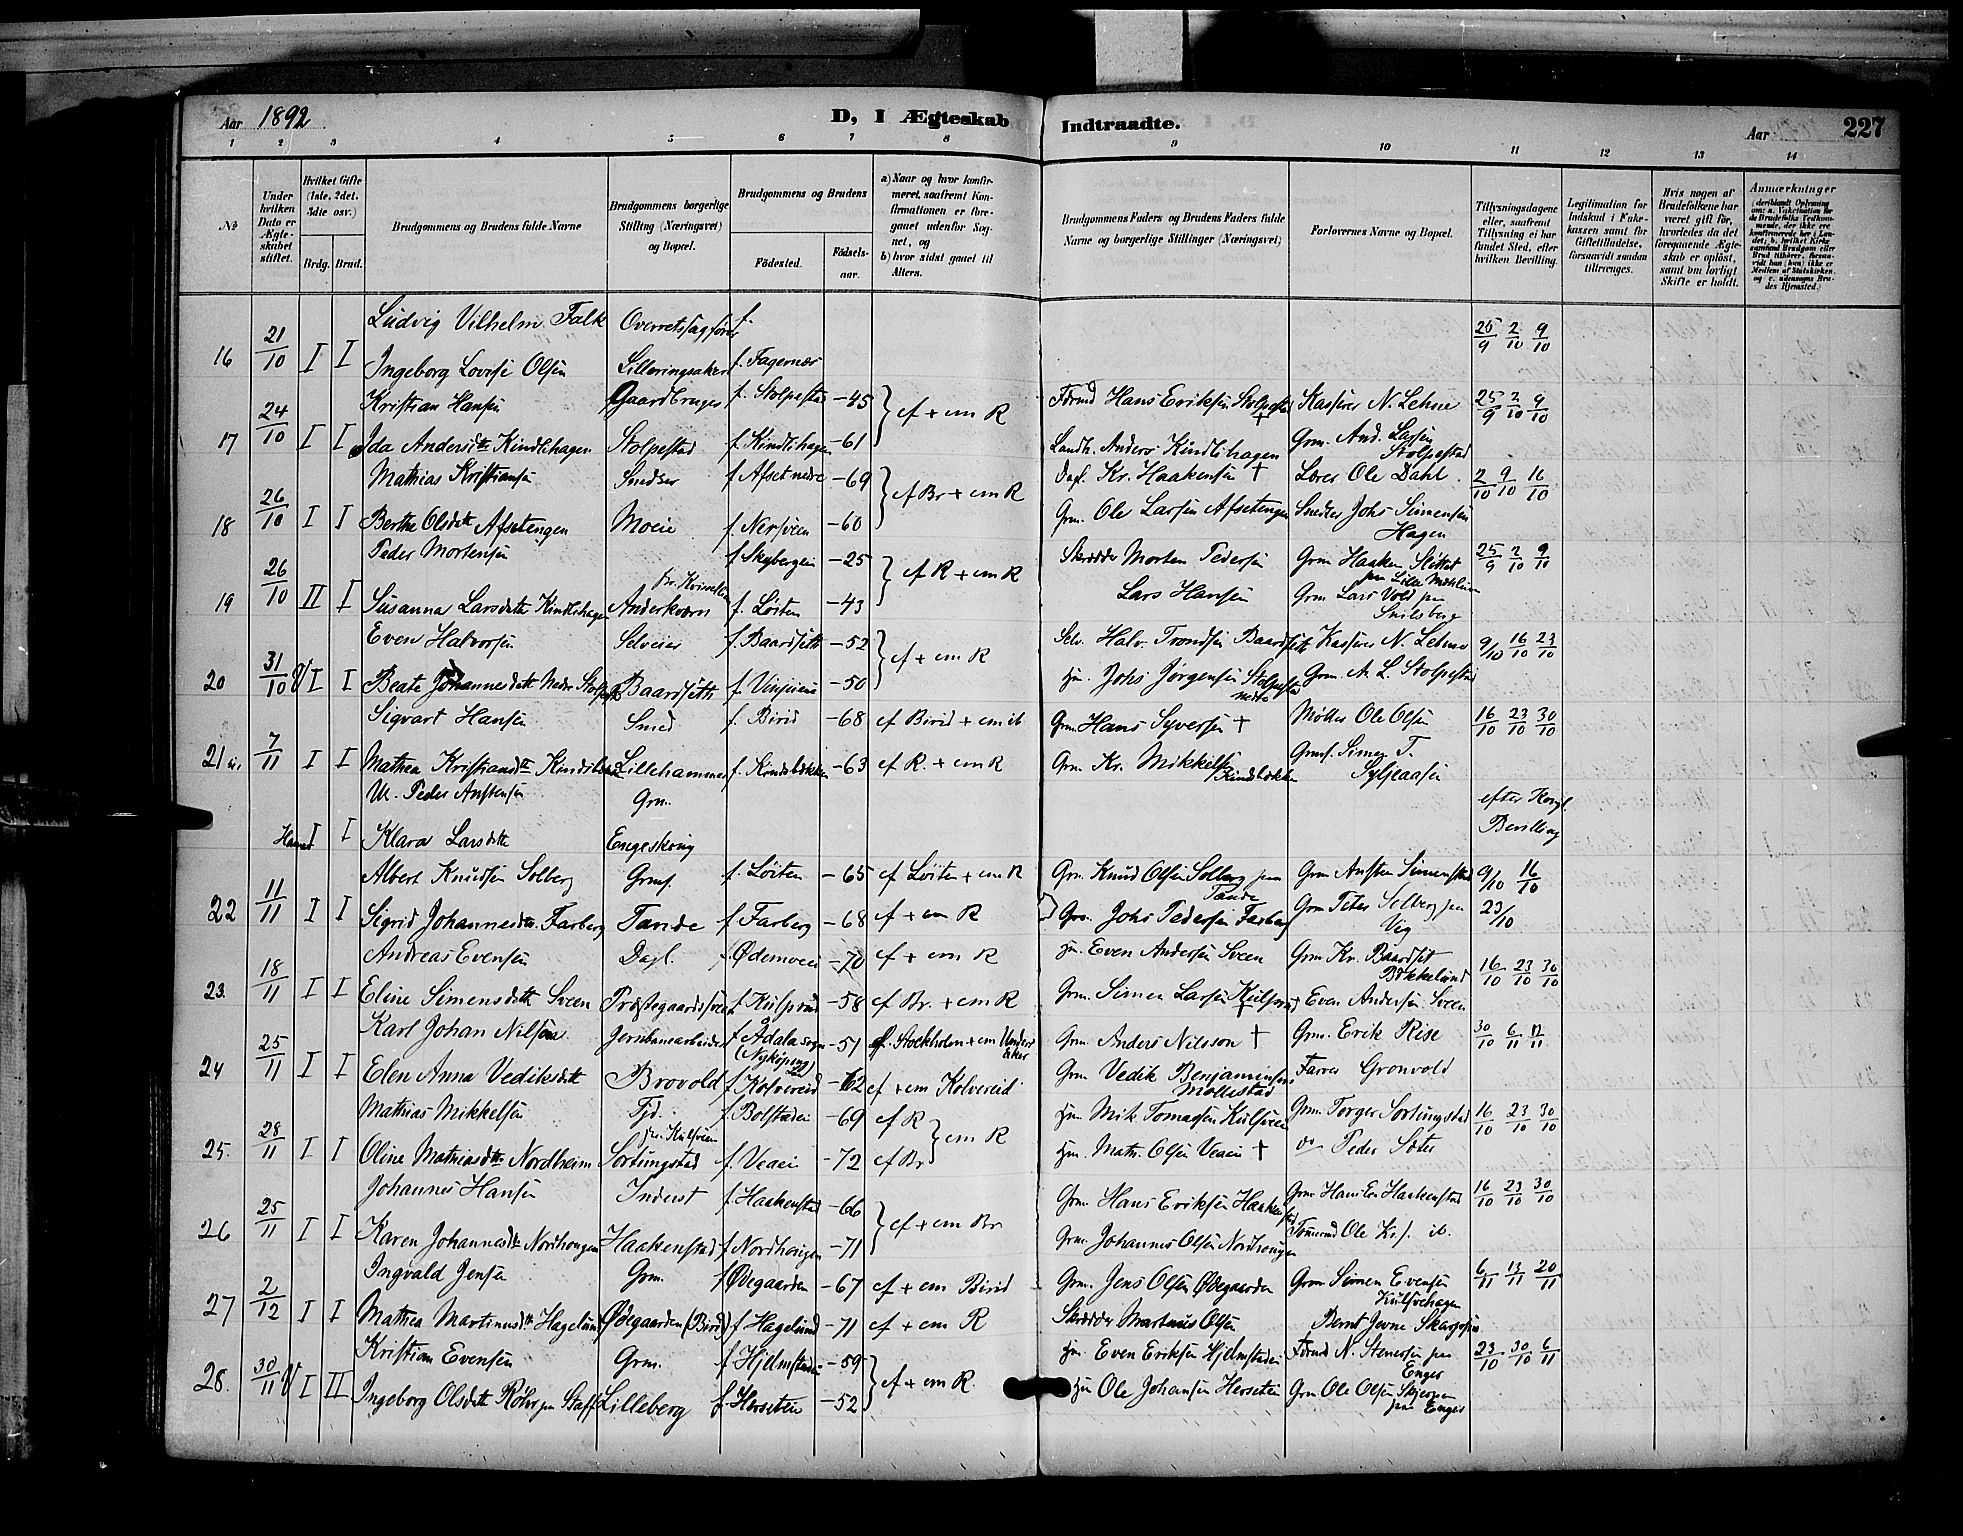 Aar 1892 D, I Ægteskab Indtraadte. Aar 227
1 2 3 4 5 6 7 8 9 10 11 12 13 14
№
Under hvilken Dato er Ægteskabet stiftet.
Hvilket Gifte (1ste, 2det, 3die osv.)
Brdg. Brud.
Brudgommens og Brudens fulde Navne
Brudgommens borgerlige Stilling (Næringsvei) og Bopæl.
Brudgommens og Brudens
Födested. Födsels-aar.
a) Naar og hvor konfirmeret, saafremt Konfirmationen er foregaaet udenfor Sognet, og
b) hvor sidst gaaet til Alters.
Brudgommens Faders og Brudens Faders fulde Navne og borgerlige Stillinger (Næringsvei)
Forlovernes Navne og Bopæl.
Tillysningsdagene eller, saafremt Tillysning ei har fundet Sted, efter hvilken Bevilling.
Legitimation for Indskud i Enkekassen samt for Giftetilladelse, forsaavidt saadan tiltrænges.
Hvis nogen af Brudefolkene har været gift før, hvorledes da det foregaaende Ægteskab er opløst, samt om lovligt Skifte er holdt.
Anmærkninger
Ludvig Vilhelm Falk Overretssagfører f.
16 21/10 I I 25/9 2/10 9/10
Ingeborg Lovise Olsen Lilleringsaker f. Fagernæs
Kristian Hansen Gaardbruger f. Stolpestad -45 Formd Hans Eriksen Stolpestad + Kasserer N. Lehne 25/9 2/10 9/10
24/10 cf + cm R
17 I I Ida Andersdtr Kindlihagen Stolpestad f. Kindlihagen -61 Landh. Anders Kindlihagen Grm. And. Larsen Stolpestad
Mathias Kristiansen Snedker f. Afset nedre -69 Dagl. Kr. Haakensen + Lærer Ole Dahl 2/10 9/10 16/10
26/10 cf Br + cm R
18 I I Berthe Olsdtr Afsetengen Moeie f. Nersveen -60 Grm. Ole Larsen Afsetengen Snedker Johs Simensen Hagen
Peder Mortensen f. Skybergeie -25 Skrædder Morten Pedersen Grm Haaken Slottet 25/9 2/10 9/10
26/10 cf R + cm R
19 II I Susanna Larsdtr Kindlihagen Anderkværn f. Løiten -43 Lars Hansen Grm Lars Vold
Even Halvorsen Selveier f. Baardseth -52 Selv. Halv. Trondsen Baardseth Kasserer N. Lehne 9/10 16/10 23/10
31/10 cf + cm R
20 I I Beate Johannesdtr Nedre Stolpestad Baardseth f. Vinjeeie -50 Hm. Johs Jørgensen Stolpestad nedre Grm. A. L. Stolpestad
Sigvart Hansen Smed f. Birid -68 cf Birid + cm ib Grm Hans Syversen + Møller Ole Olsen 16/10 23/10 30/10
21 7/11 I I Mathea Kristiansdtr Lillehammer -63 cf R. + cm R Grm. Kr. Mikkelsen Simen T. Syljeaasen
Peder Anstensen Grm. efter Kongl.
I I Klara Larsdtr Engeskoug Bevilling
Albert Knudsen Solberg Grms. f. Løiten -65 cf Løiten + cm R Grm. Knud Olsen Solberg Tande Grm Ansten Simenstad 9/10 16/10
22 11/11 I I Sigrid Johannesdtr. Farberg Tande f Farberg -68 cf + cm R Grm. Johs Pedersen Farberg Grm Peter Solberg Vig 23/10
Andreas Evensen Dagl. f. Ødemoen -70 cf + cm R Hm. Even Andersen Sveen Grm Kr. Baardset Bækkelund 16/10 23/10 30/10
23. 18/11 I I Eline Simensdtr Sveen Præstegaardssveen f Kulsrud -58 cf Br. + cm R Grm. Simen Larsen + Even Andersen Sveen
Karl Johan Nilsen Jernbanearbeider f Ådala sogn (Nyköping) -51 cf. Stockholm + cm Grm. Anders Nilsson + Grm. Erik Rise 30/10 6/11
24 25/11 I I Elen Anna Vediksdtr Brovold f Kolvereid -62 cf + cm Kolvereid Grm. Vedik Benjaminsen Møllestad Farver Grønvold
Mathias Mikkelsen Tjd. f. Bolstadeie -69 cf R Hm. Mik. Tomassen Kulsveen Grm. Torger Sortungstad 16/10 23/10 30/10
28/11 cm R
25. I I Oline Mathiasdtr Nordheim Sortungstad f. Veaei -72 cf Br Hm. Math. Olsen Veaeie + Peder Sæter
Johannes Hansen Inderst f. Haakenstad -66 Grm. Hans Eriksen Haakenstad Grm Hans En Haakenstad 16/10 23/10 30/10
25/11 cf + cm Br
26 I I Karen Johannesdtr Nordhougen Haakenstad f Nordhougen -71 Grm. Johannes Olsen Nordhougen Tømmermd Ole Kr.s. ib.
Ingvald Jensen Grm. f Ødegaarden -67 cf + cm Birid Grm. Jens Olsen Ødegaarden Grm Simen Evensen Kulsvehagen 6/11 13/11 20/11
27 2/12 I I Mathea Martinusdtr Hagelund Ødegaarden (Birid) f Hagelund -71 cf + cm R Skrædder Martinus Olsen Bernt Jevne
Kristian Evensen Grm. f Hjelmstadeie -59 Hm. Even Eriksen Hjelmstadeie Formd N. Stenersen Enger 23/10 30/10 6/11
30/11 cf + cm R
28. I II Ingeborg Olsdtr Lilleberg f Herseteie -52 Hm Ole Johansen Herseteie Grm Ole Olsen Enger